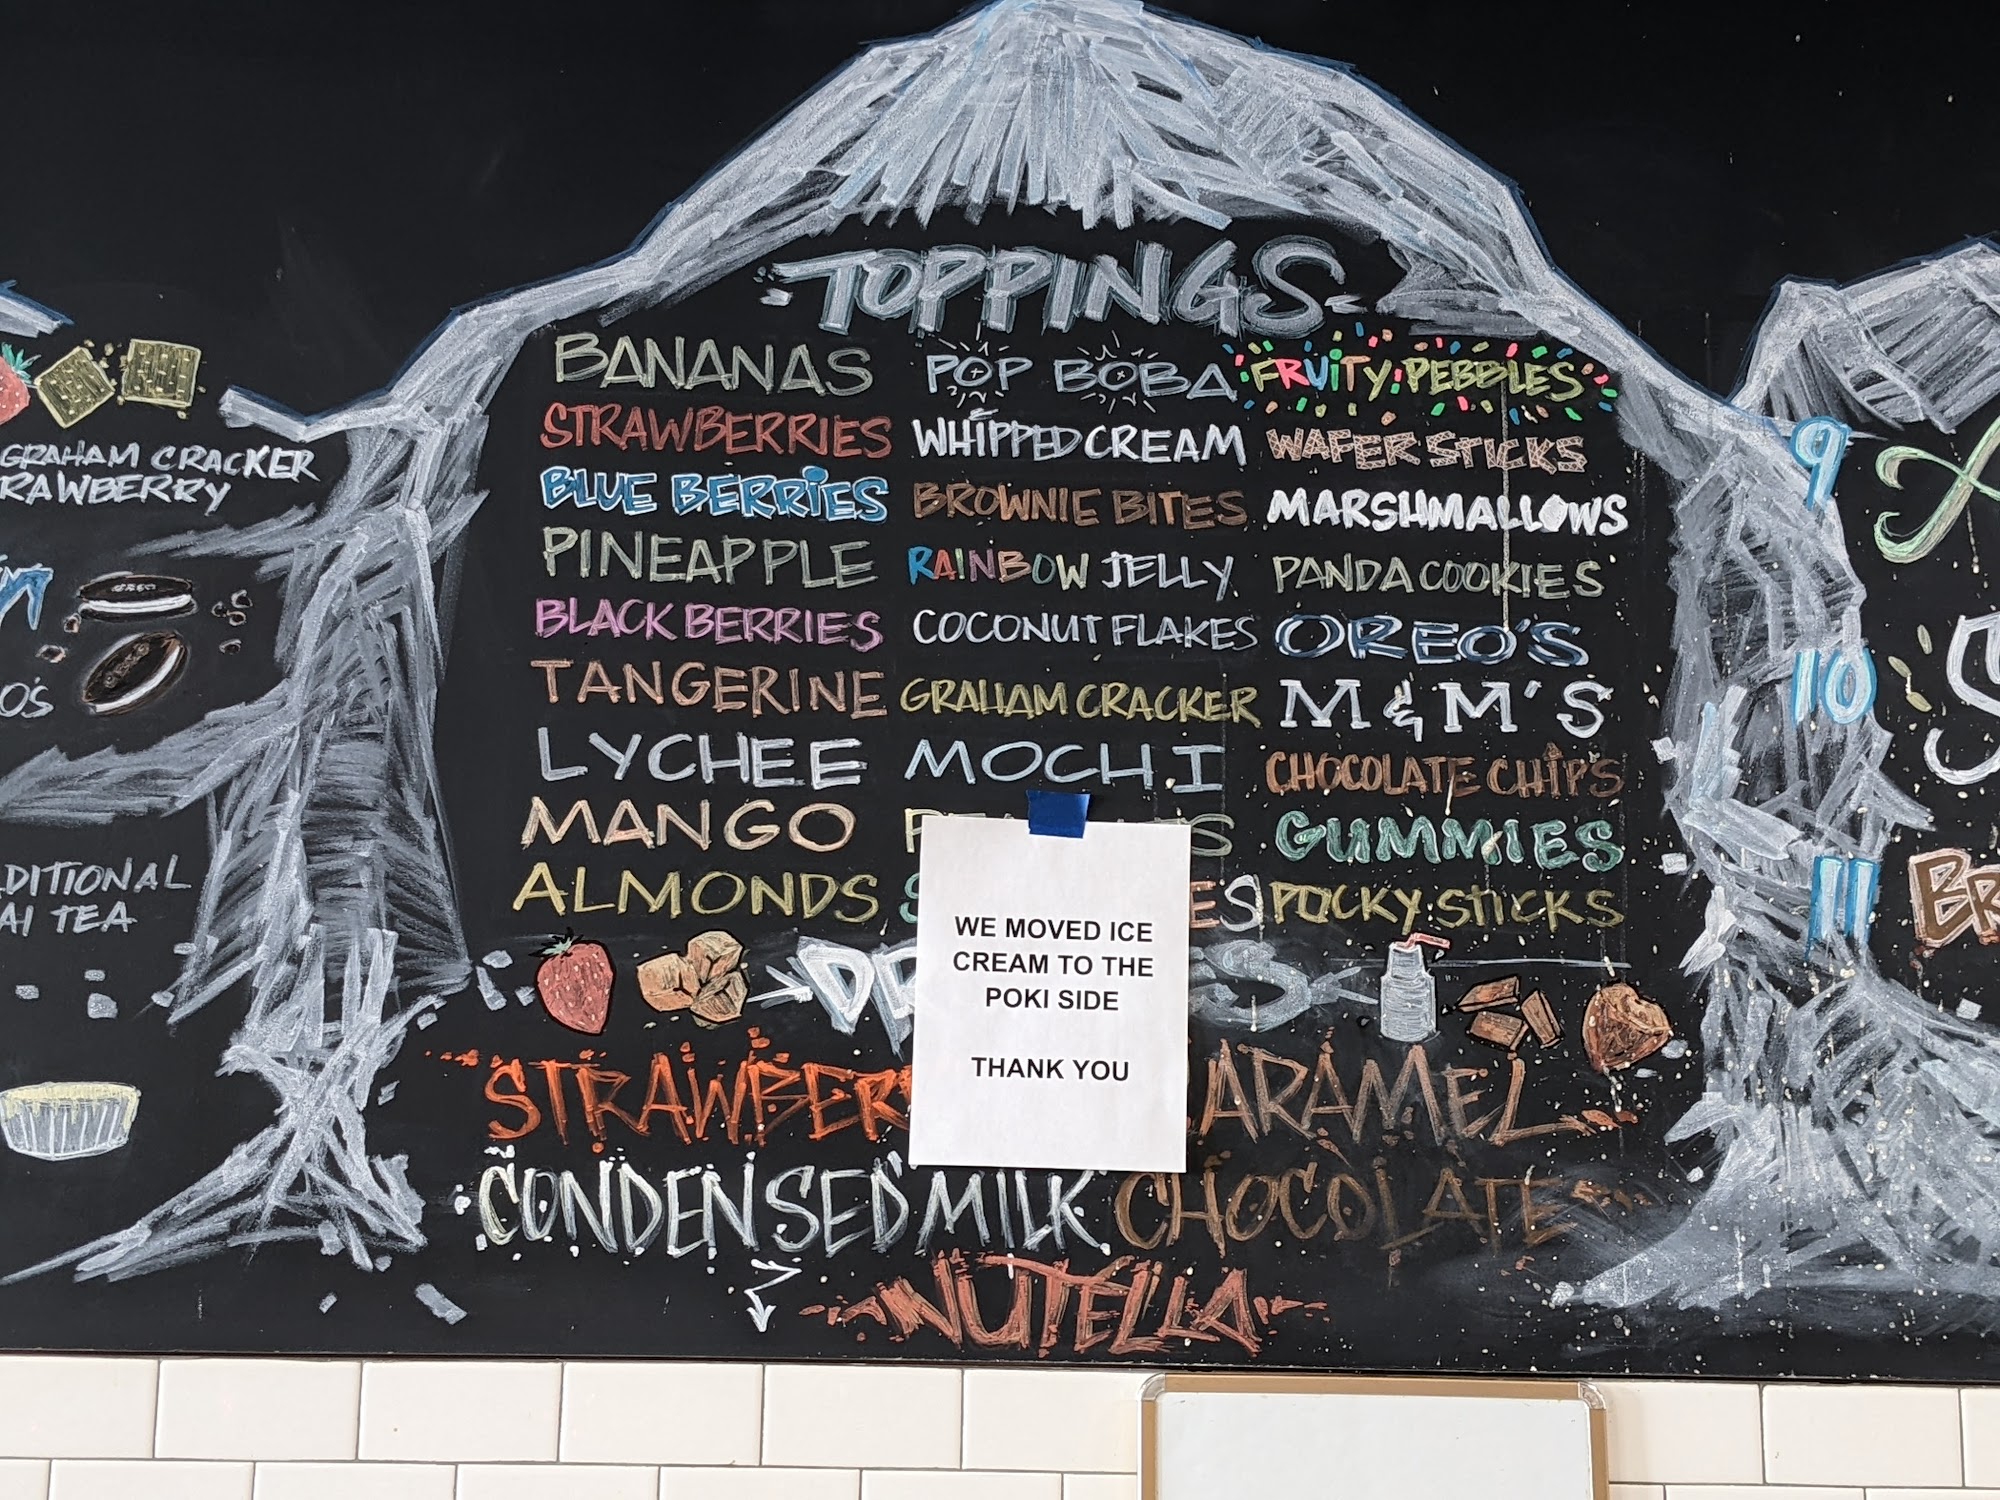 TOPPINGS
BANANAS
STRAWBERRIES
BLUE BERRIES
PINEAPPLE
BLACK BERRIES
TANGERINE
LYCHEE
MANGO
ALMONDS
POP BOBA
WHIPPED CREAM
BROWNIE BITES
RAINBOW JELLY
COCONUT FLAKES
GRAHAM CRACKER
MOCHI
FRUITY PEBBLES
WAFER STICKS
MARSHMALLOWS
PANDA COOKIES
OREO'S
M & M'S
CHOCOLATE CHIPS
GUMMIES
POCKY STICKS
WE MOVED ICE
CREAM TO THE
POKI SIDE
THANK YOU
CONDENSED MILK CHOCOLATE
NUTELLA
GRAHAM CRACKER
OREO
TEA
9
10
11